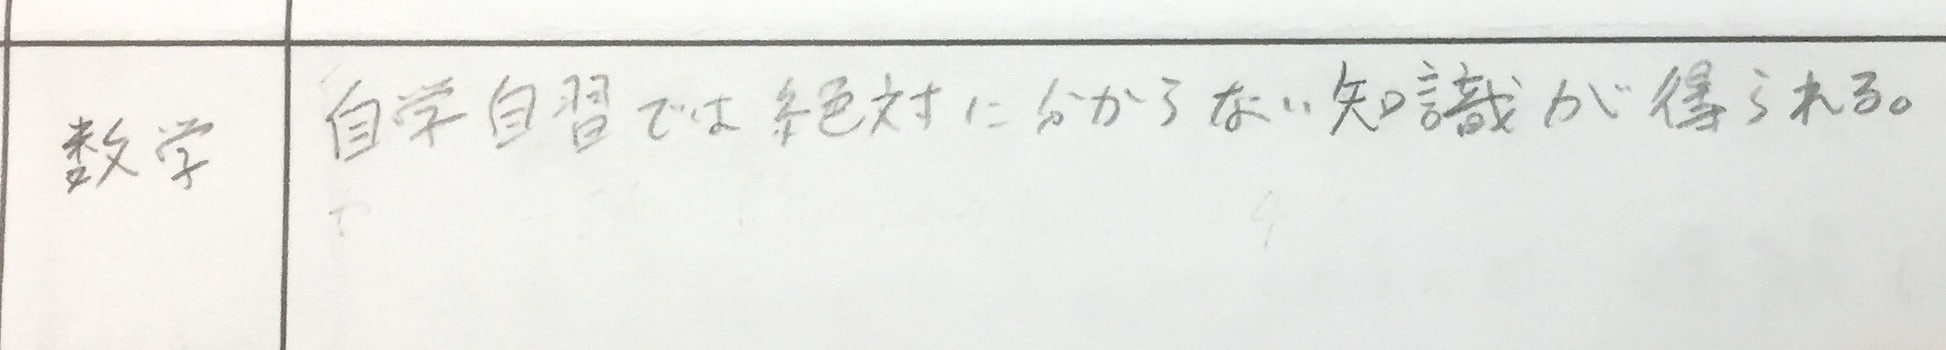 数学
自学自習では絶対に分からない知識が得られる。